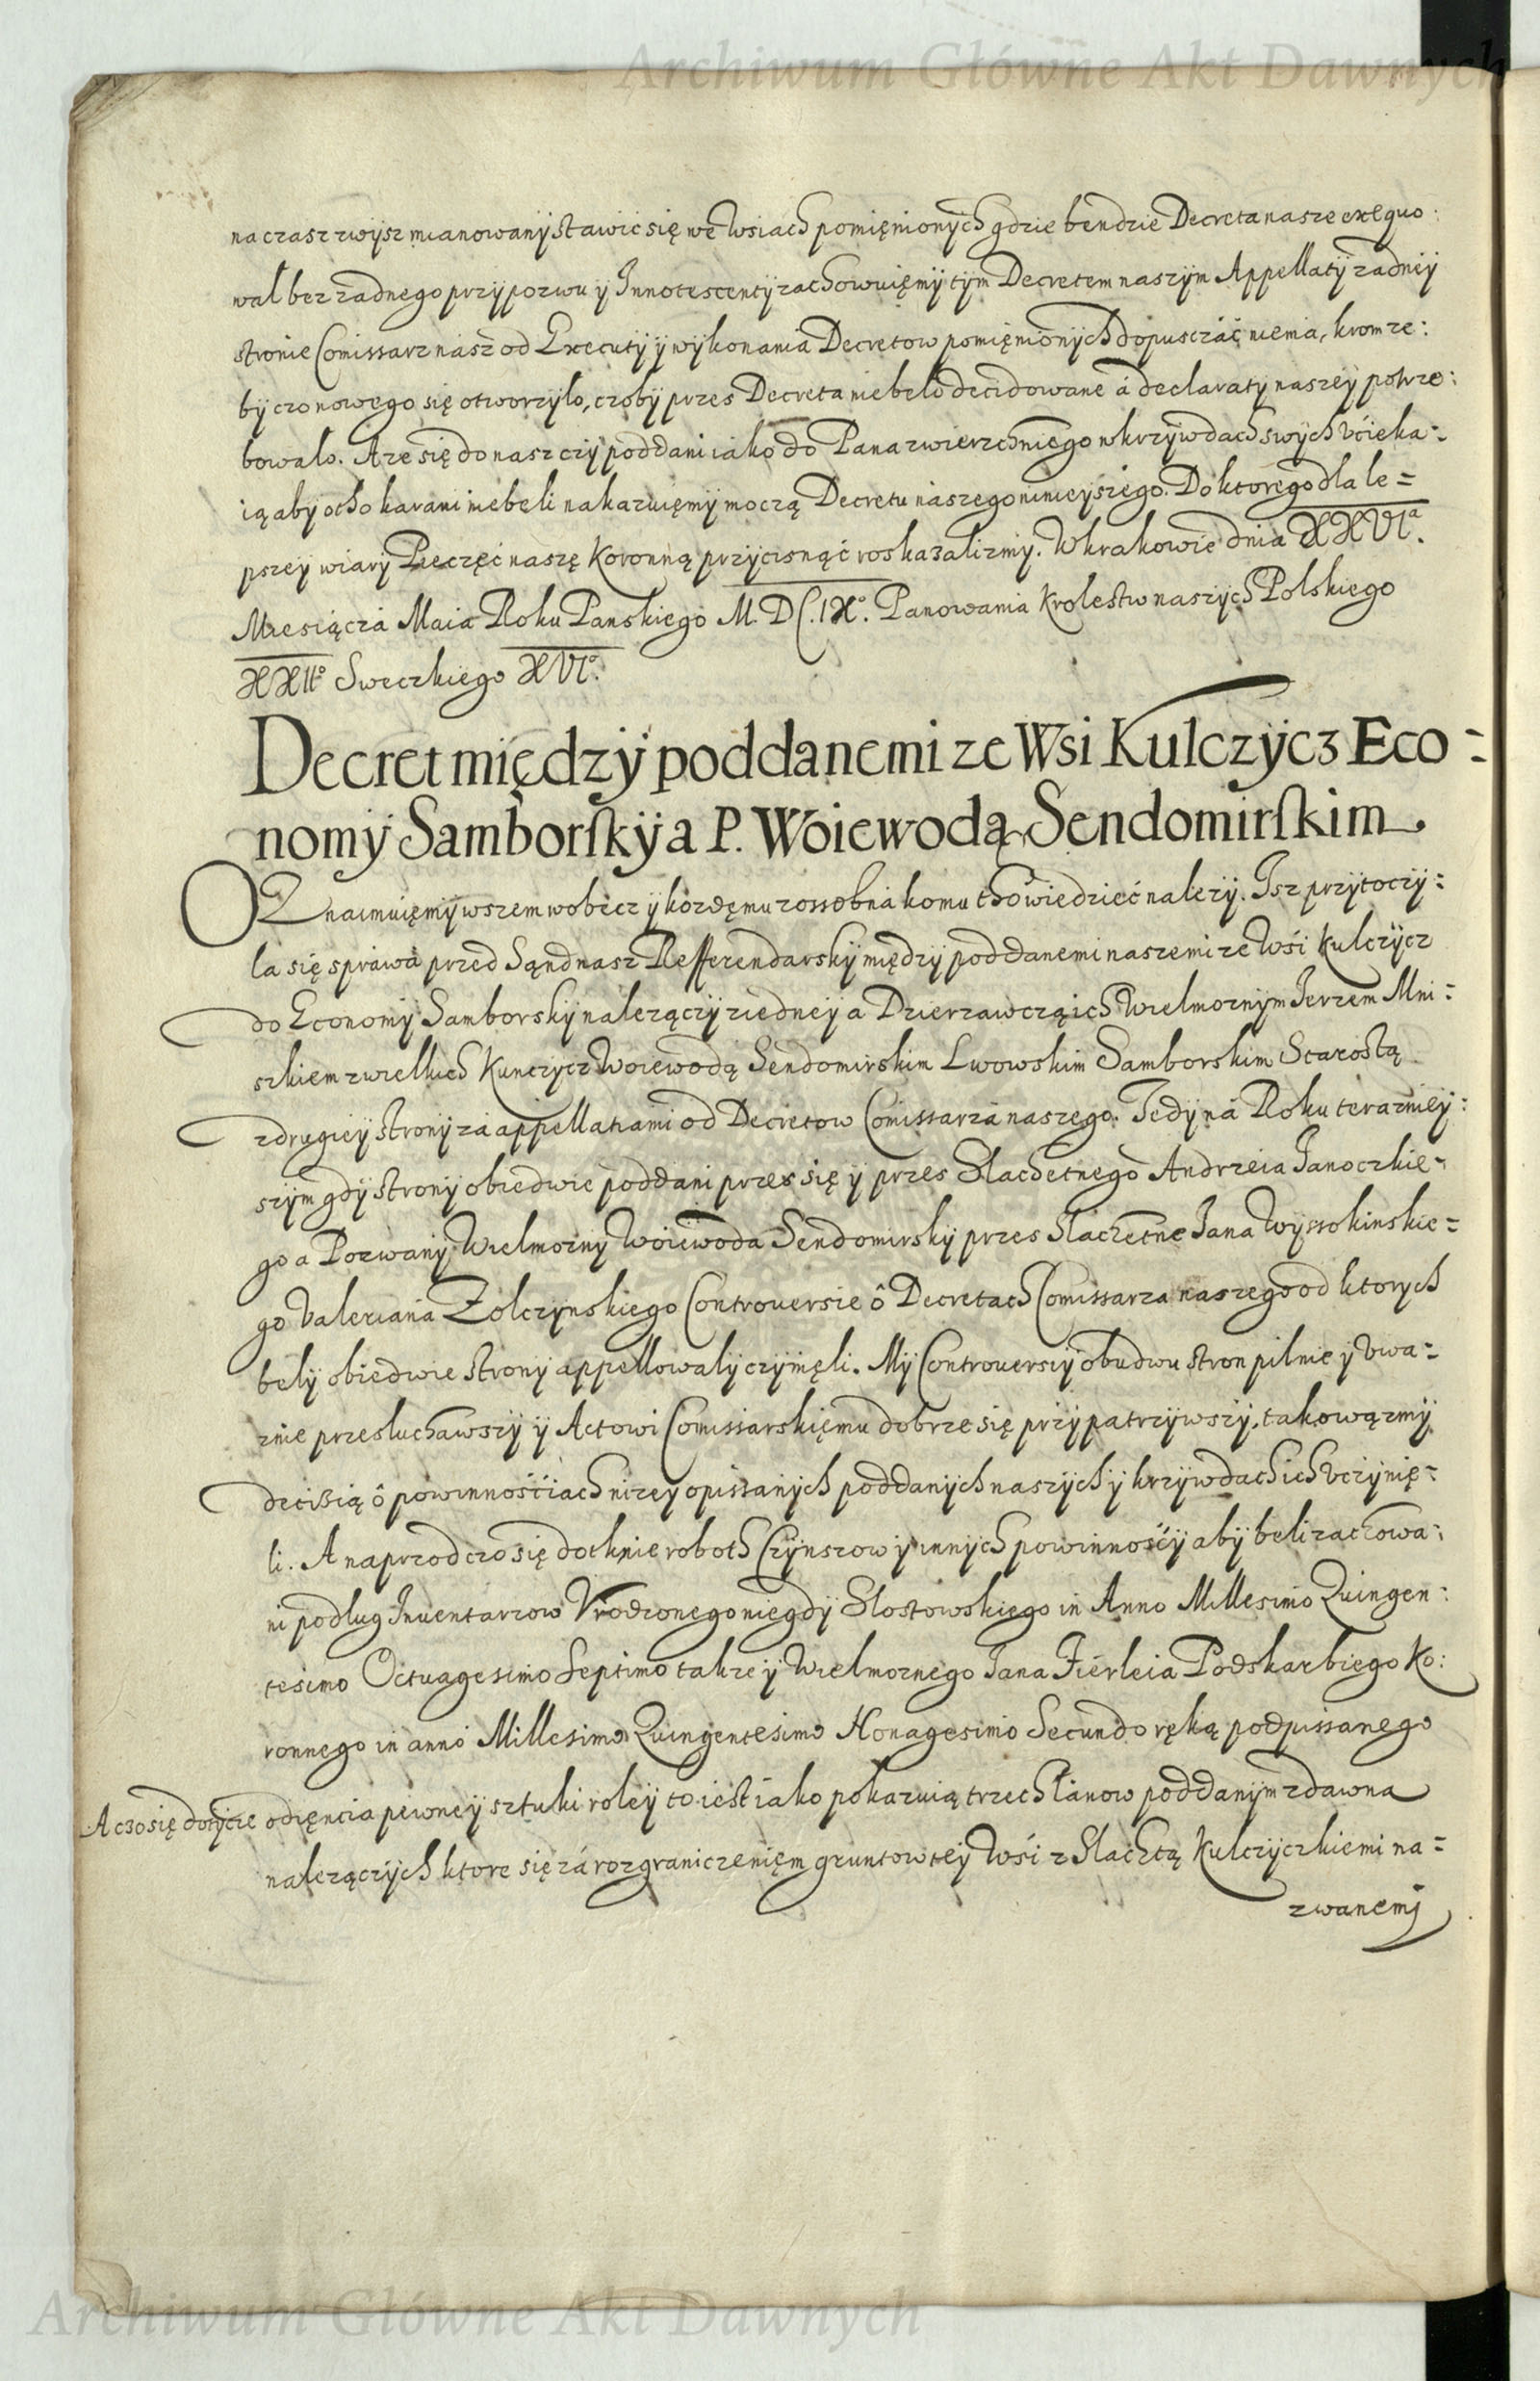 Archiwum Główne Akt Dawnych
na czasz zwysz mianowany stawić się we wsiach pomięnionych gdzie bendzie Decreta nasze exequo:
wal bez zadnego przypozwu y Innotescenty zachowuięmy tym Decretem naszym Appellaty zadney
stronie Comissarz nasz od Executy y wykonania Decretow pomięnionych dopusczać niema, krom ze:
by czo nowego się otworzylo, czoby przes Decreta niebelo decidowane a declaraty naszey potrze:
bowalo. A ze się do nasz czy poddani iako do Pana zwierzchniego w krzywdach swych vcieka=
ią aby otho karani niebeli nakazuięmy moczą Decretu naszego ninieyszego. Do ktorego dla le=
pszey wiary Pieczęć naszę Koronną przycisnąć roskazalizmy. W krakowie dnia XXVIa.
Miesiącza Maia Roku Panskiego M. D C. IXo. Panowania Krolestw naszych Polskiego
XXIIo Sweczkiego XVIo.
Decret między poddanemi ze Wsi Kulczycz Eco=
nomy Samborsky a P. Woiewodą Sendomirskim
OZnaimuięmy wszem wobecz y kozdęmu zossobna komu tho wiedzieć nalezy. Isz przytoczy=
la się sprawa przed Sąnd nasz Refferendarsky między poddanemi naszemi ze Wsi Kulczycz
do Economy Samborsky nalezączy z iedney a Dzierzawczą ich Wielmoznym Ierzem Mni=
szkiem z wielkich Kunczycz Woiewodą Sendomirskim Lwowskim Samborskim Starostą
z drugiey strony za appellatiami od Decretow Comissarza naszego. Tedy na Roku terazniey:
szym gdy strony obiedwie poddani przes się y przes Slachetnego Andrzeia Ianoczkie=
go a Pozwany Wielmozny Woiewoda Sendomirsky przes Slachetne Iana Wyssokinskie=
go Valeriana Zolczynskiego Controuersie o Decretach Comissarza naszego od ktorych
bely obiedwie strony appellowaly czynięli. My Controuersiy obudwu stron pilnie y vwa=
znie przesluchawszy y Actowi Comissarskięmu dobrze się przypatrzywszy, takowązmy
decisią o powinnościach nizey opissanych poddanych naszych y krzywdach ich vczynię=
li. A naprzod czo się dotknie roboth Czynszow y innych powinnosciy aby beli zachowa:
ni podlug Inuentarzow Vrodzonego niegdy Slostowskiego in Anno Millesimo Quingen:
tesimo Octuagesimo Septimo takze y Wielmoznego Iana Fierleia Podskarbiego Ko:
ronnego in anno Millesimo Quingentesimo Nonagesimo Secundo ręką podpissanego
A czo się dotycze odięncia pewney sztuki roley to iest iako pokazuią trzech lanow poddanym zdawna
nalezączych ktore się za rozgraniczenięm gruntow tey Wsi z Slachtą Kulczyczkiemi na=
zwanemi
Archiwum Główne Akt Dawnych